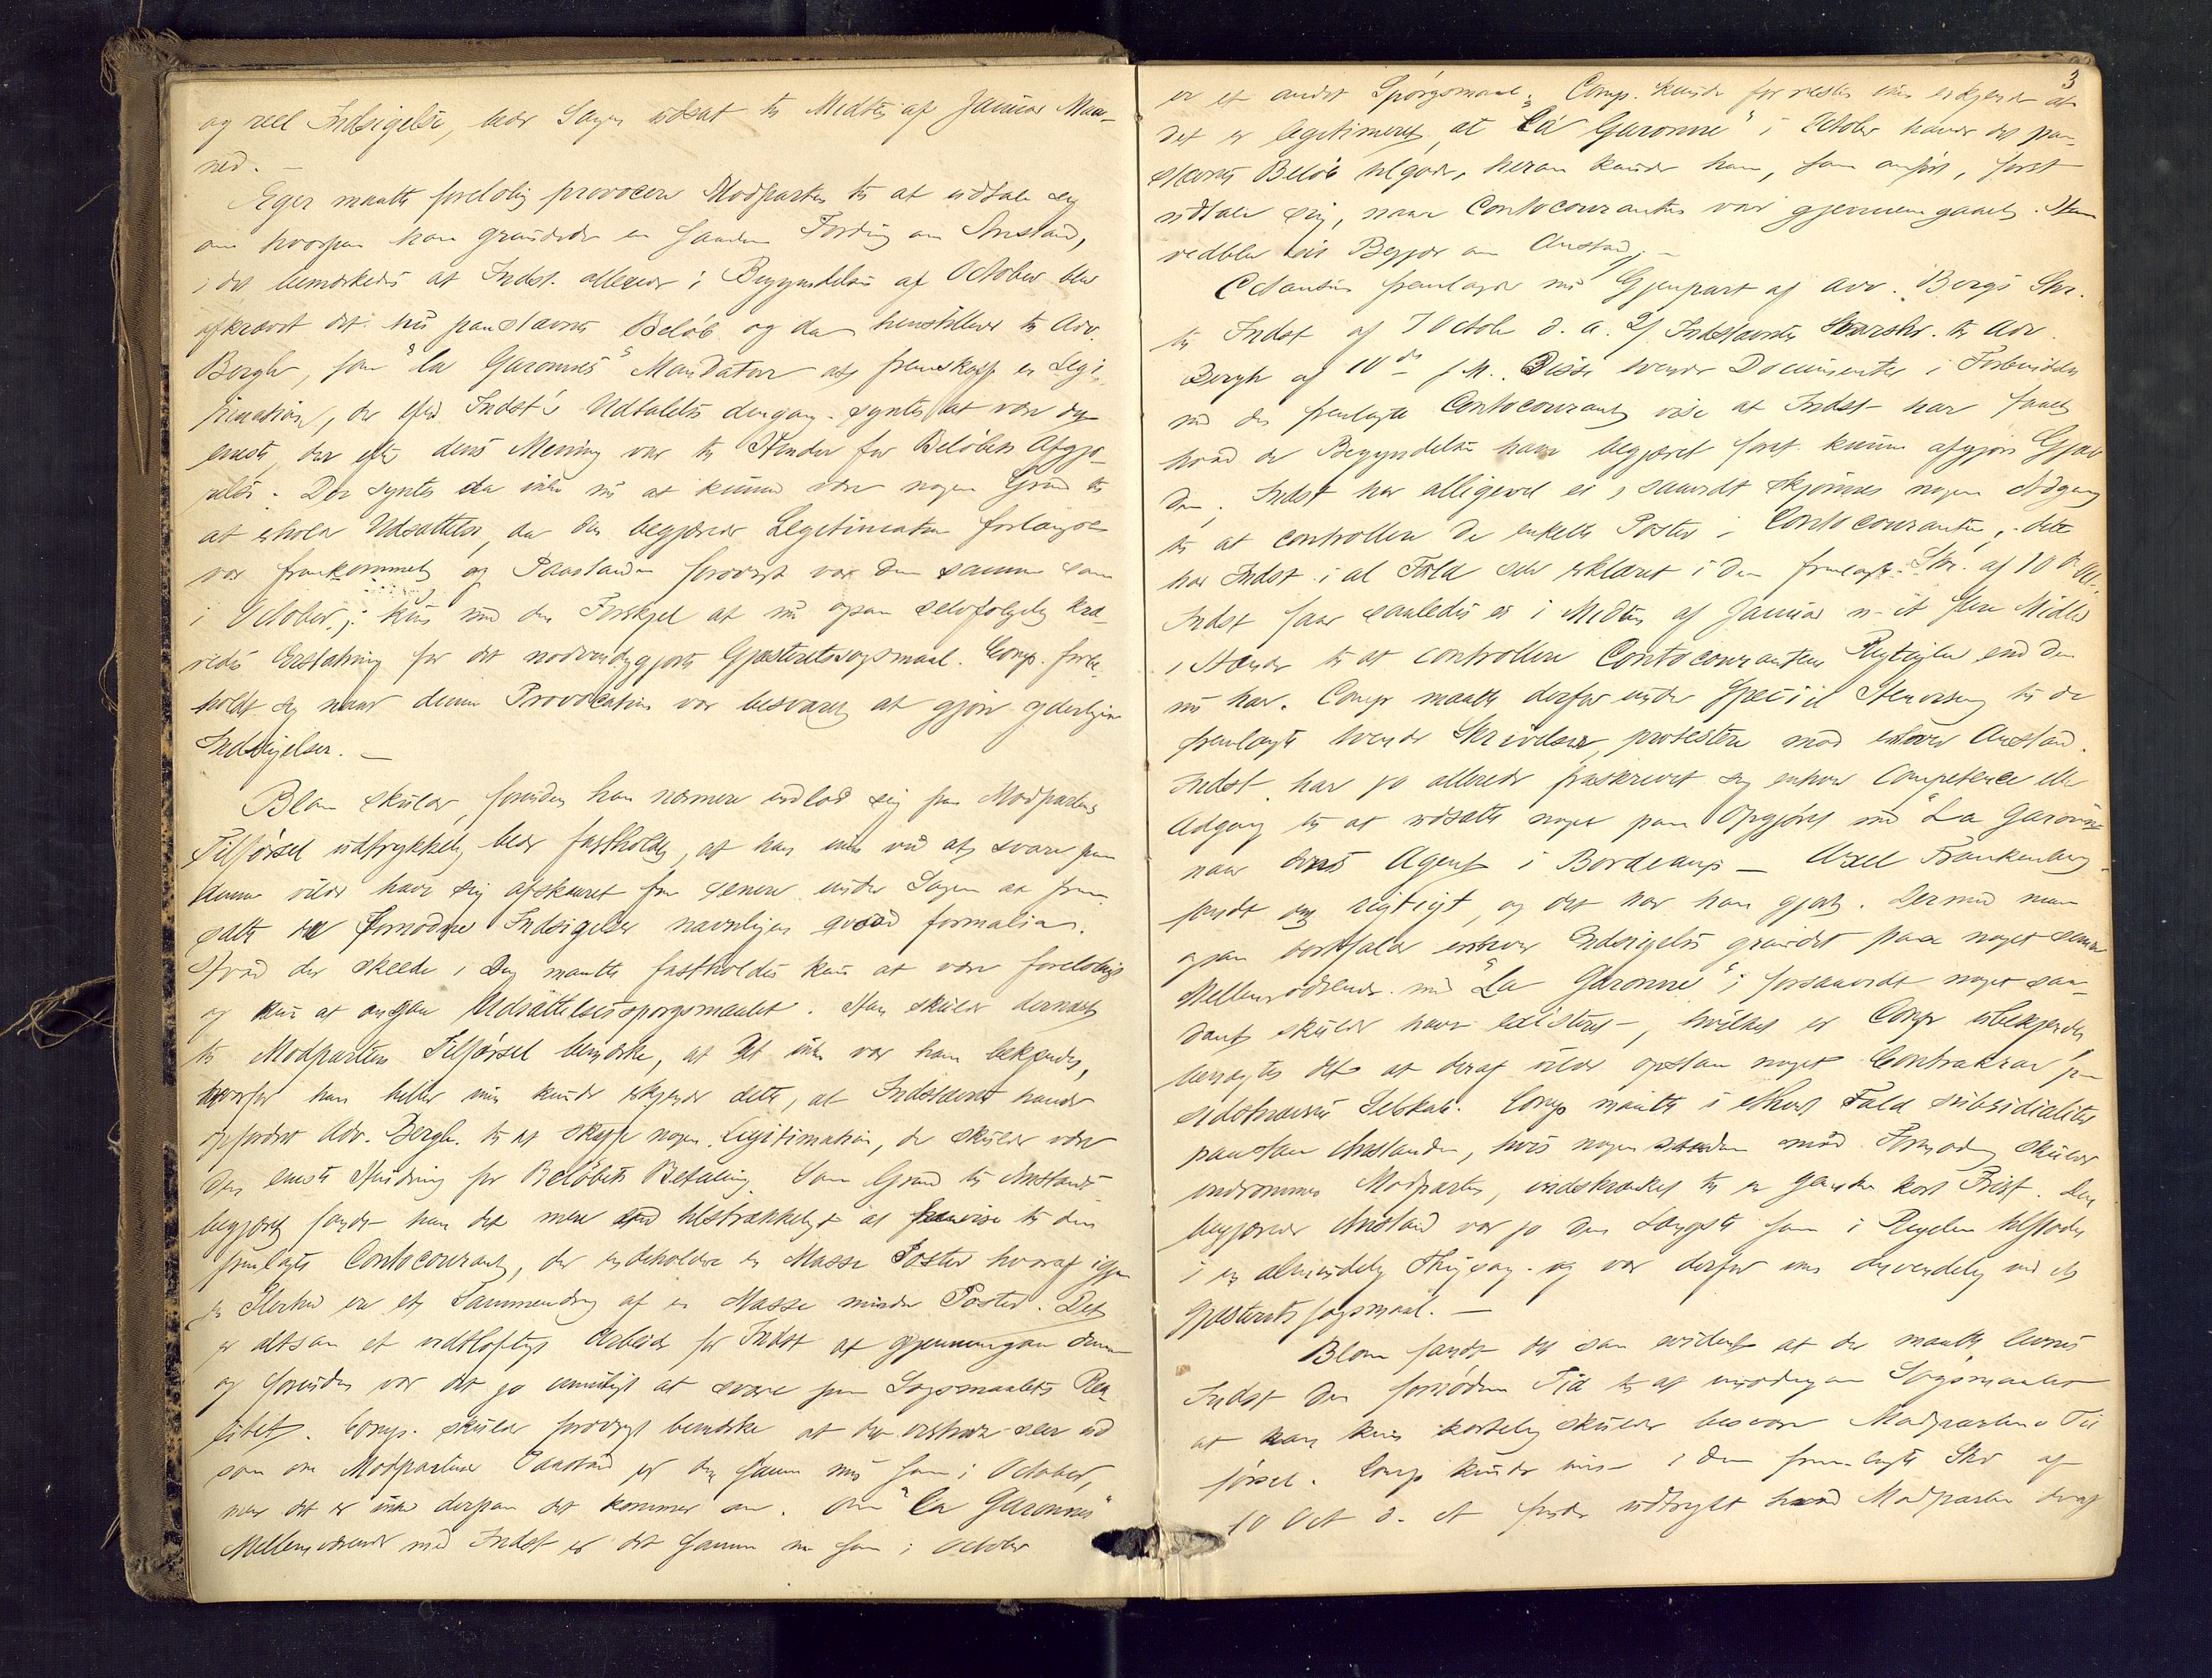 og reel Indsigelse, beder Sagen udsat til Midten af Januar Maa-
ned. -
Eger maatte foreløbig provocere Modparten til at udtale sig
om hvorpaa han grundede en saadan Fordring om Anstand,
i det bemærkedes at Indst. allerede i Begyndelsen af October blev
afkrævet det nu paastævnte Beløb og da henstillede til Adv.
Bergh, som "la Garonnes" Mandatar at fremskaffe en Legi-
timation, der efter Indst's Udtalelse dengang syntes at være det
eneste, der efter dens Mening var til Hinder for Beløbets Afgjø-
relse. Der syntes da ikke nu at kunne være nogen Grund til
at erholde Udsættelse, da den begjærede Legitimation forlængst
var fremkommet og Paastanden forøvrigt var den samme som
i October; kun med den Forskjel at nu ogsaa selvfølgelig kræ-
vedes Erstatning for det nødvendiggjorte Gjæsteretssøgsmaal. Comp. forbe-
holdt sig naar denne Provocation var besvaret at gjøre yderligere
Indsigelser. -
Blom skulde, forinden han nærmere indlod sig paa Modpartens
Tilførsel udtrykkelig bede fastholdt, at han ikke ved at svare paa
denne vilde have sig afskaaret fra senere under Sagen at frem-
sætte de fornødne Indsigelser navnligen qvoad formalia.
Hvad der skeede i Dag maatte fastholdes kun at være foreløbigt
og kun at angaa Udsættelsesspørgsmaalet. Han skulde dernæst
til Modpartens Tilførsel bemærke, at det ikke var ham bekjendt,
hvorfor han heller ikke kunde erkjende dette, at Indstævnte havde
opfordret Adv. Bergh til at skaffe nogen Legitimation, der skulde være
den eneste Hindring for Beløbets Betaling. Som Grund til Anstands-
begjæret fandt han det mere end tilstrækkeligt at henvise til den
fremlagte Contocourant, der indeholder en Masse Poster hvoraf igjen
en Flerhed er et Sammendrag af en Masse mindre Poster. Det
er altsaa et vidtløftigt Arbeide for Indst at gjennemgaa denne
og forinden var det jo umuligt at svare paa Søgsmaalets Rea-
litet. Comp. skulde forøvrigt bemærke at det vistnok seer ud
som om Modpartens Paastand er den samme nu som i October,
men det er ikke derpaa det kommer an. Om "la Garonnes"
Mellemværende med Indst er det samme nu som i October
3
er et andet Spørgsmaal. Comp. kunde forresten ikke erkjende at
det er legitimeret, at "La Garonne" i October havde det paa-
stævnte Beløb tilgode, herom kunde han, som anført, først
udtale sig, naar Contocouranten var gjennemgaaet. Han
vedblev sit Begjær om Anstand. -
Citanten fremlagde nu Gjenpart af Adv. Berghs Skr.
til Indst af 7 October d. A. 2/ Indstævntes Svarskr. til Adv.
Bergh af 10de s. M. Disse tvende Documenter i Forbindelse
med den fremlagte Contocourant vise at Indst har faaet
hvad de Begyndelsen have begjæret for at kunne afgjøre Gjæl-
den. Indst har alligevel ei, saavidt skjønnes nogen Adgang
til at controllere de enkelte Poster i Contocouranten, dette
har Indst i al Fald selv erklæret i den fremlagte Skr. af 10de Oct.
Indst faar saaledes ei i Midten af Januar n. A. flere Midler
i Hænde til at controllere Contocourantens Rigtighed end den
nu har. Comp maatte derfor under Speciel Henvisning til de
fremlagte tvende Skrivelser, protestere mod enhver Anstand.
Indst. har jo allerede fraskrevet sig enhver Competence eller
Adgang til at udsætte noget paa Opgjøret med "La Garonne"
naar dens Agent i Bordeaux - Axel Frankenberg -
fandt det rigtigt, og det har han gjort. Dermed maa
ogsaa bortfalde enhver Indsigelse grundet paa noget senere
Mellemværende med "La Garonne"; forsaavidt noget saa-
dant skulde have existeret -, hvilket er Comp ubekjendt,
benægtes det at deraf vilde opstaa noget Contrakrav for
indstævnte Selskab. Comp maatte i ethvert Fald subsidialiter
paastaa Anstanden, hvis nogen saadan mod Formodning skulde
indrømmes Modparten, indskrænket til en ganske kort Frist. Den
begjærede Anstand var jo den længste som i Regelen tilstodes
i en almindelig Thingsag og var derfor uanvendelig ved et
Gjæsteretssøgsmaal. -
Blom fandt det saa evident at der maatte levnes
Indst den fornødne Tid til at imødegaa Søgsmaalet
at han kun kortelig skulde besvare Modpartens Til-
førsel. Comp kunde ikke i den fremlagte Skr af
10 Oct d. A finde udtrykt hvad Modparten deraf